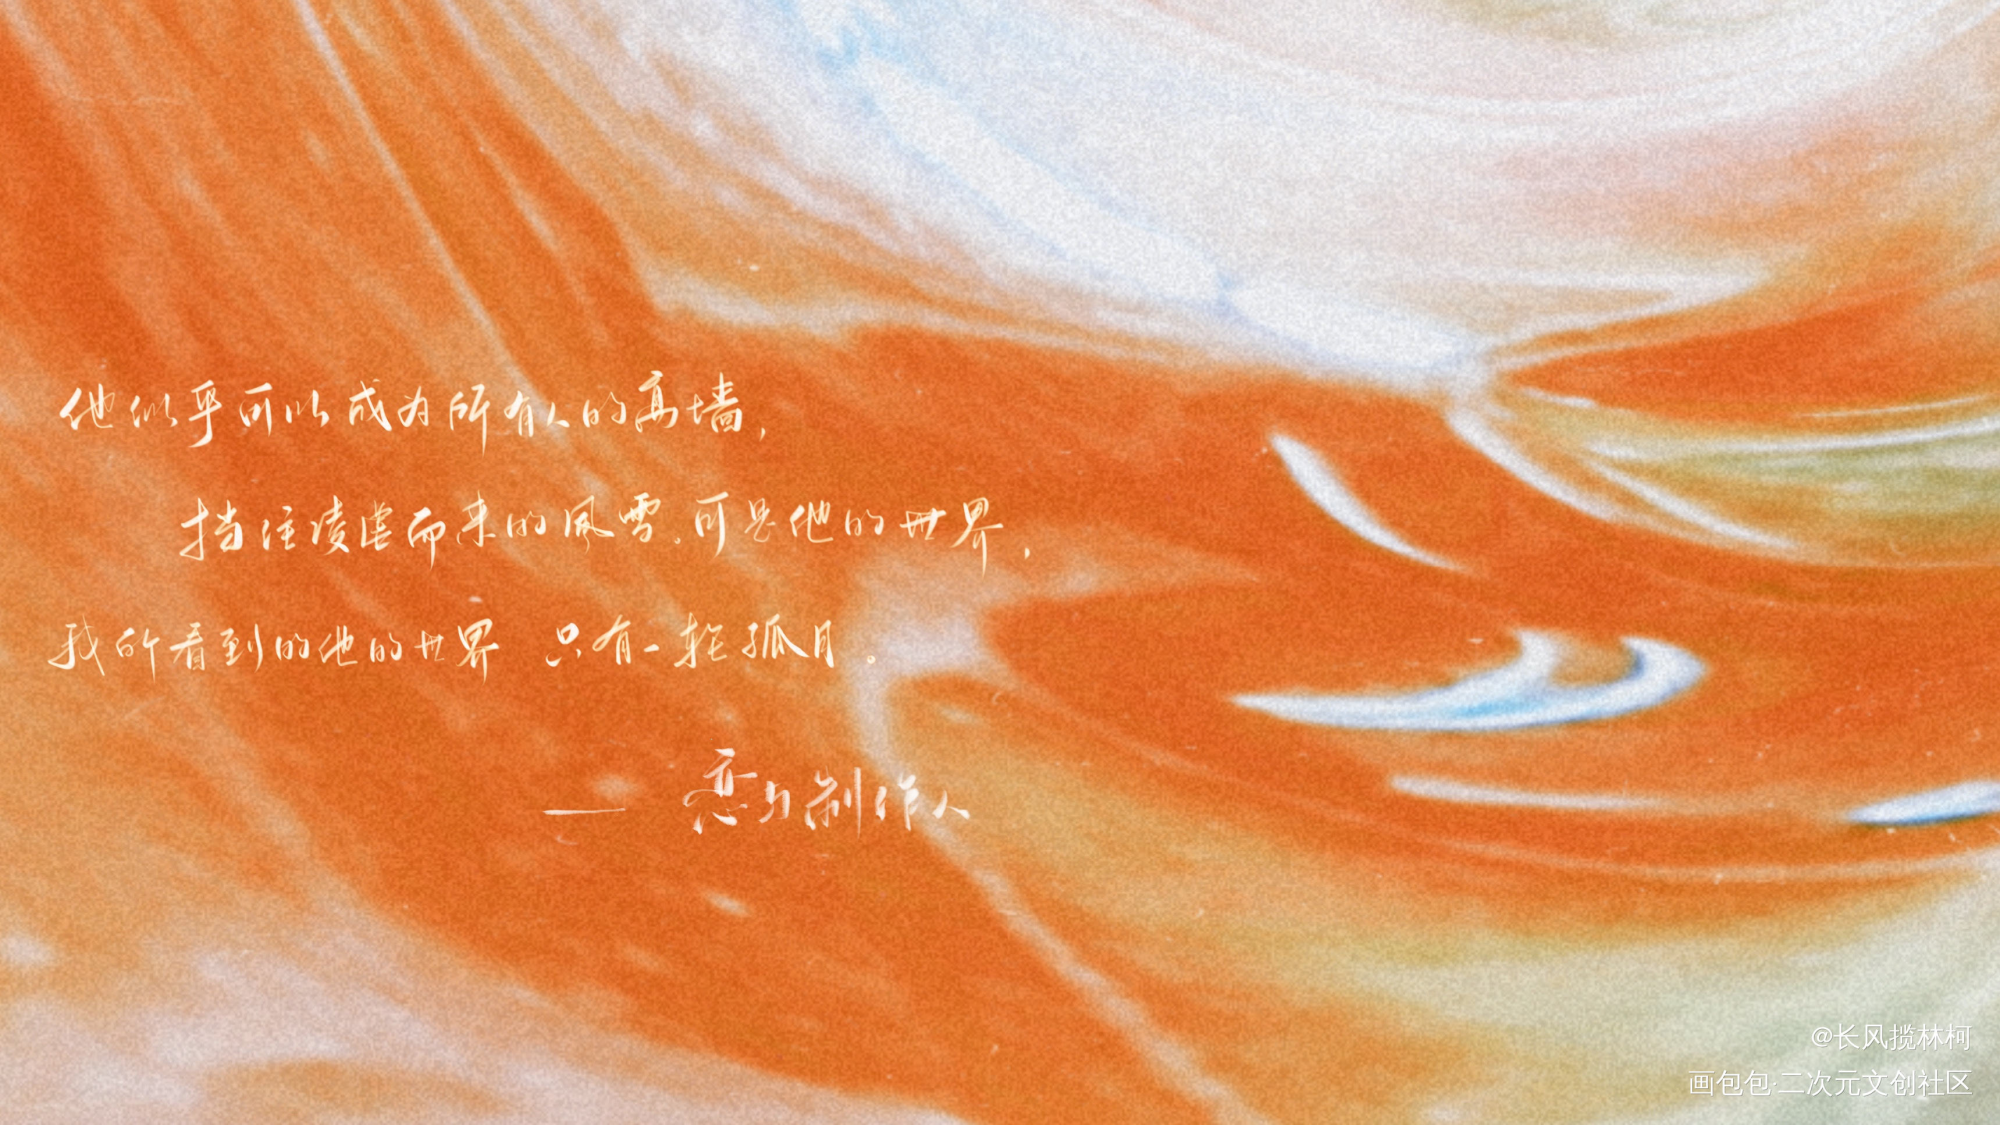 他似乎可以成为所有人的高墙，
挡住凌虐而来的风雪，可是他的世界，
我所看到的他的世界 只有一轮孤月。
—— 恋与制作人
@长风揽林柯
画包包·二次元文创社区